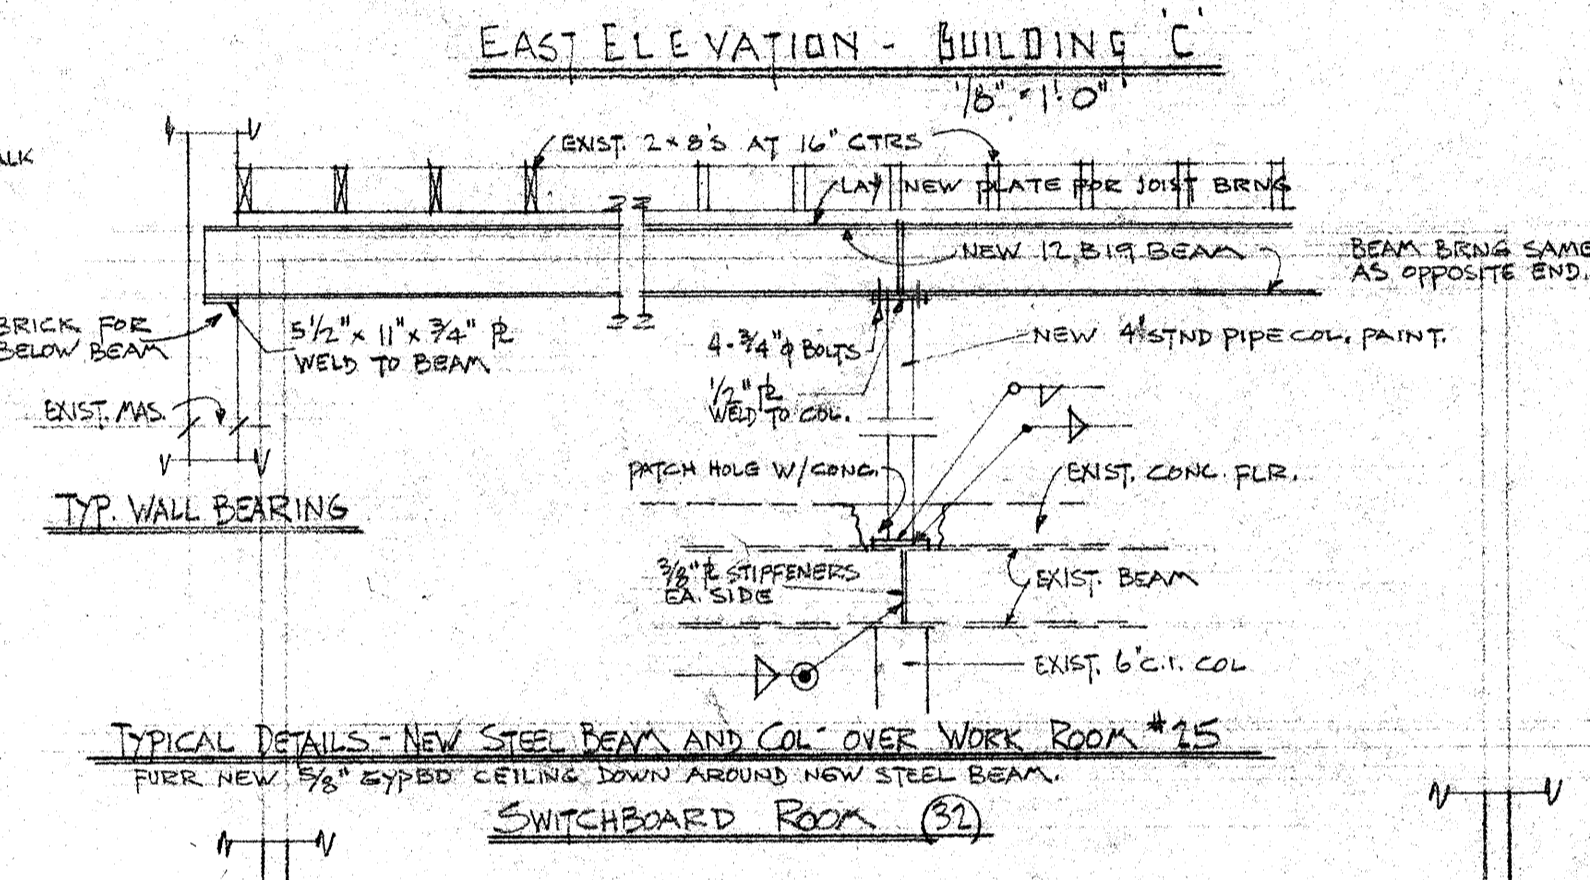 EAST ELEVATION - BUILDING 'C'
1/8" = 1'-0"
ALK
EXIST. 2x8'S AT 16" CTRS
LAY NEW PLATE FOR JOIST BRNG
NEW 12 B19 BEAM
BEAM BRNG SAME
AS OPPOSITE END.
BRICK FOR
BELOW BEAM
5 1/2" x 11" x 3/4" PL
WELD TO BEAM
4 - 3/4" φ BOLTS
NEW 4" STND PIPE COL. PAINT.
1/2" PL
WELD TO COL.
EXIST. MAS.
PATCH HOLE W/CONC.
EXIST. CONC. FLR.
TYP. WALL BEARING
3/8" PL STIFFENERS
EA. SIDE
EXIST. BEAM
EXIST. 6" C.I. COL
TYPICAL DETAILS - NEW STEEL BEAM AND COL- OVER WORK ROOM #25
FURR NEW 5/8" GYPBD CEILING DOWN AROUND NEW STEEL BEAM.
SWITCHBOARD ROOM 32